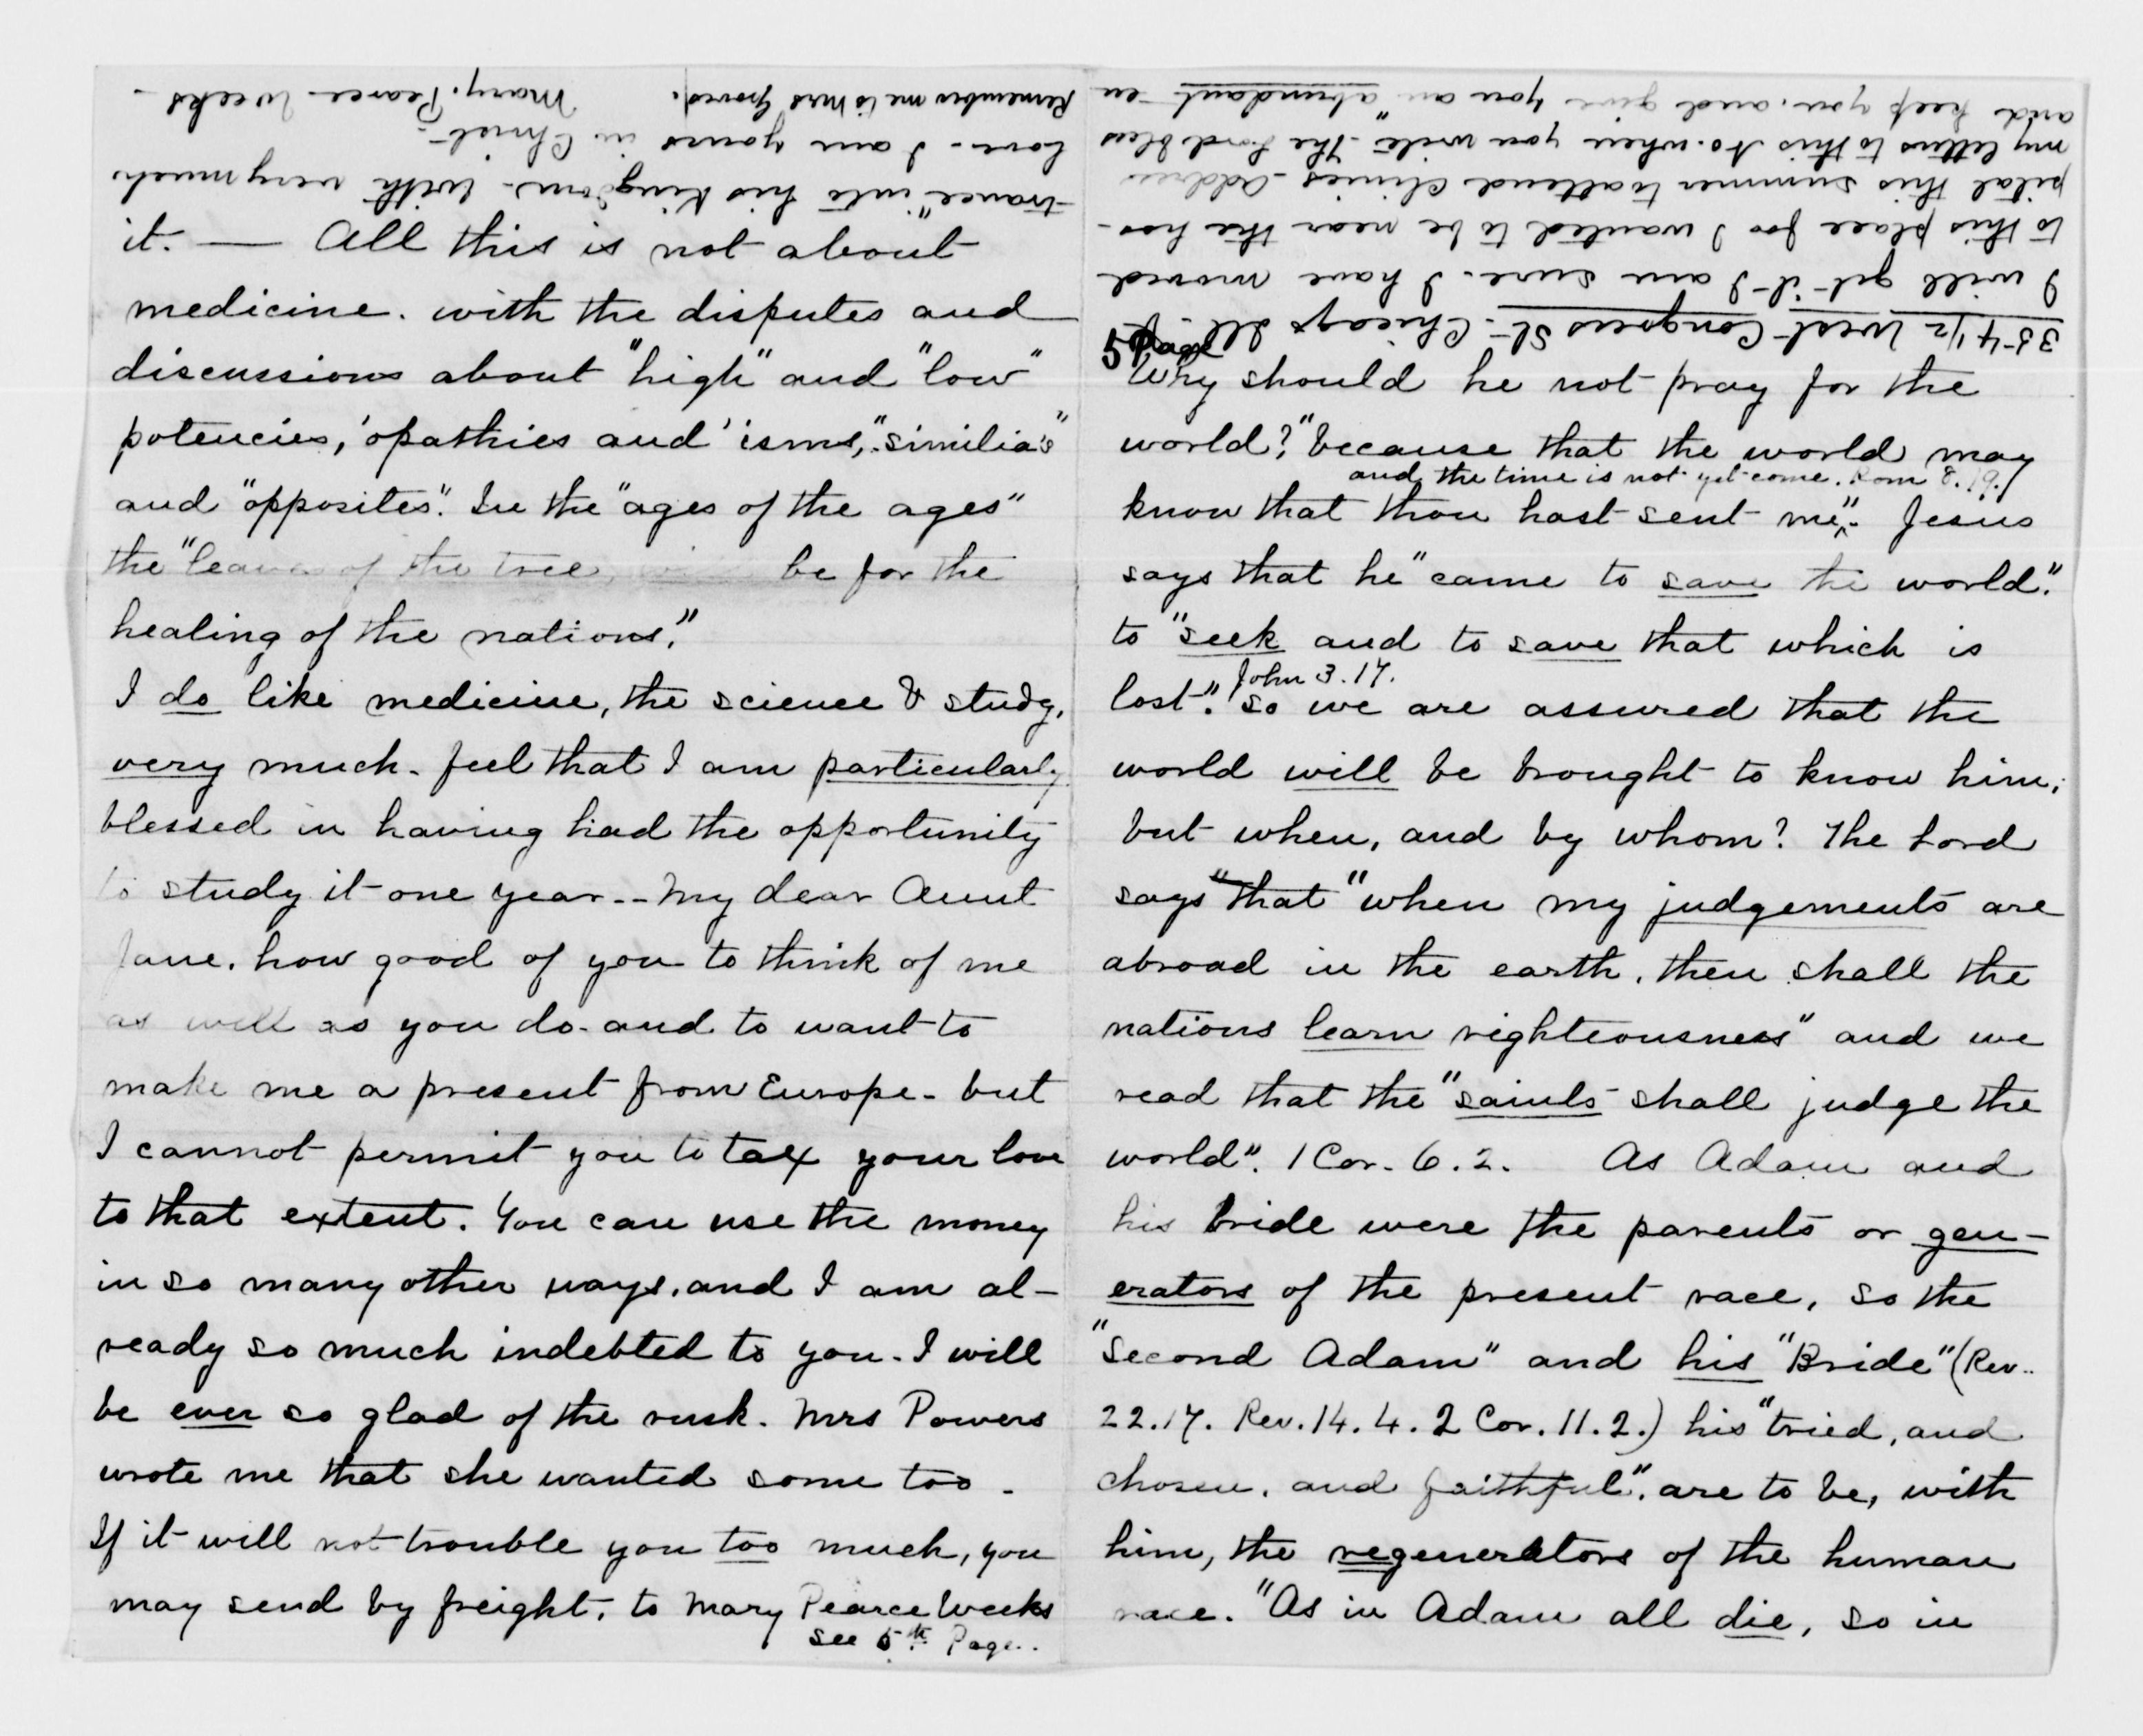 it. — All this is not about
medicine. with the disputes and
discussions about "high" and "low"
potencies, 'opathies and 'isms, "similia's"
and "opposites". In the "ages of the ages"
the "leaves of the tree, will be for the
healing of the nations."
I do like medicine, the science & study,
very much. feel that I am particularly
blessed in having had the opportunity
to study it one year -- My dear Aunt
Jane. how good of you to think of me
as well as you do. and to want to
make me a present from Europe. but
I cannot permit you to tax your love
to that extent. You can use the money
in so many other ways. and I am al-
ready so much indebted to you. I will
be ever so glad of the rusk. Mrs Powers
wrote me that she wanted some too.
If it will not trouble you too much, you
may send by freight. to Mary Pearce Weeks
see 5th Page.
5 Page
Why should he not pray for the
world? "because that the world may
and the time is not yet come. Rom 8.19.
know that thou hast sent me". Jesus
says that he "came to save the world."
to "seek and to save that which is
John 3.17.
lost". So we are assured that the
world will be brought to know him;
but when, and by whom? The Lord
says "that "when my judgements are
abroad in the earth, then shall the
nations learn righteousness" and we
read that the "saints shall judge the
world". 1 Cor. 6.2. As Adam and
his bride were the parents or gen-
erators of the present race, so the
"Second Adam" and his "Bride" (Rev.
22.17. Rev. 14.4. 2 Cor. 11.2.) his "tried, and
chosen, and faithful". are to be, with
him, the regenerators of the human
race. "As in Adam all die, so in
354 1/2 West Congress St. Chicago Ill.
I will get it I am sure. I have moved
to this place for I wanted to be near the hos-
pital this summer to attend clinics. Address
my letters to this No. when you write. The Lord bless
and keep you, and give you an "abundant en
-trance" into his Kingdom. With very much
Love. I am yours in Christ.
Remember me to Mrs Groves. Mary. Pearce Weeks